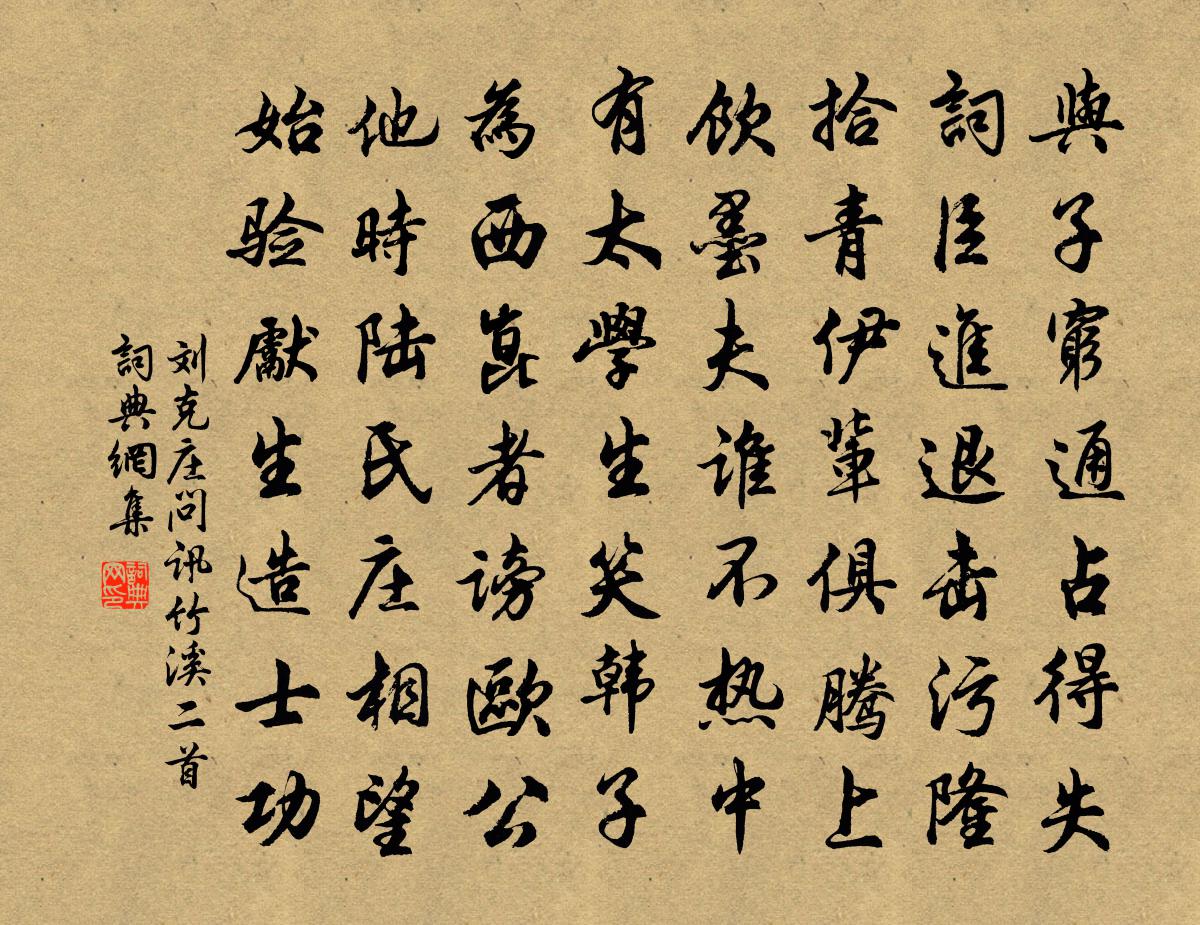 與子窮通占得失
詞臣進退击污隆
拾青伊輩俱腾上
飲墨夫誰不热中
有太學生笑韩子
為西崑者謗歐公
他時陆氏庄相望
始验獻生造士功
刘克庄问讯竹溪二首
詞典網集
詞典网印